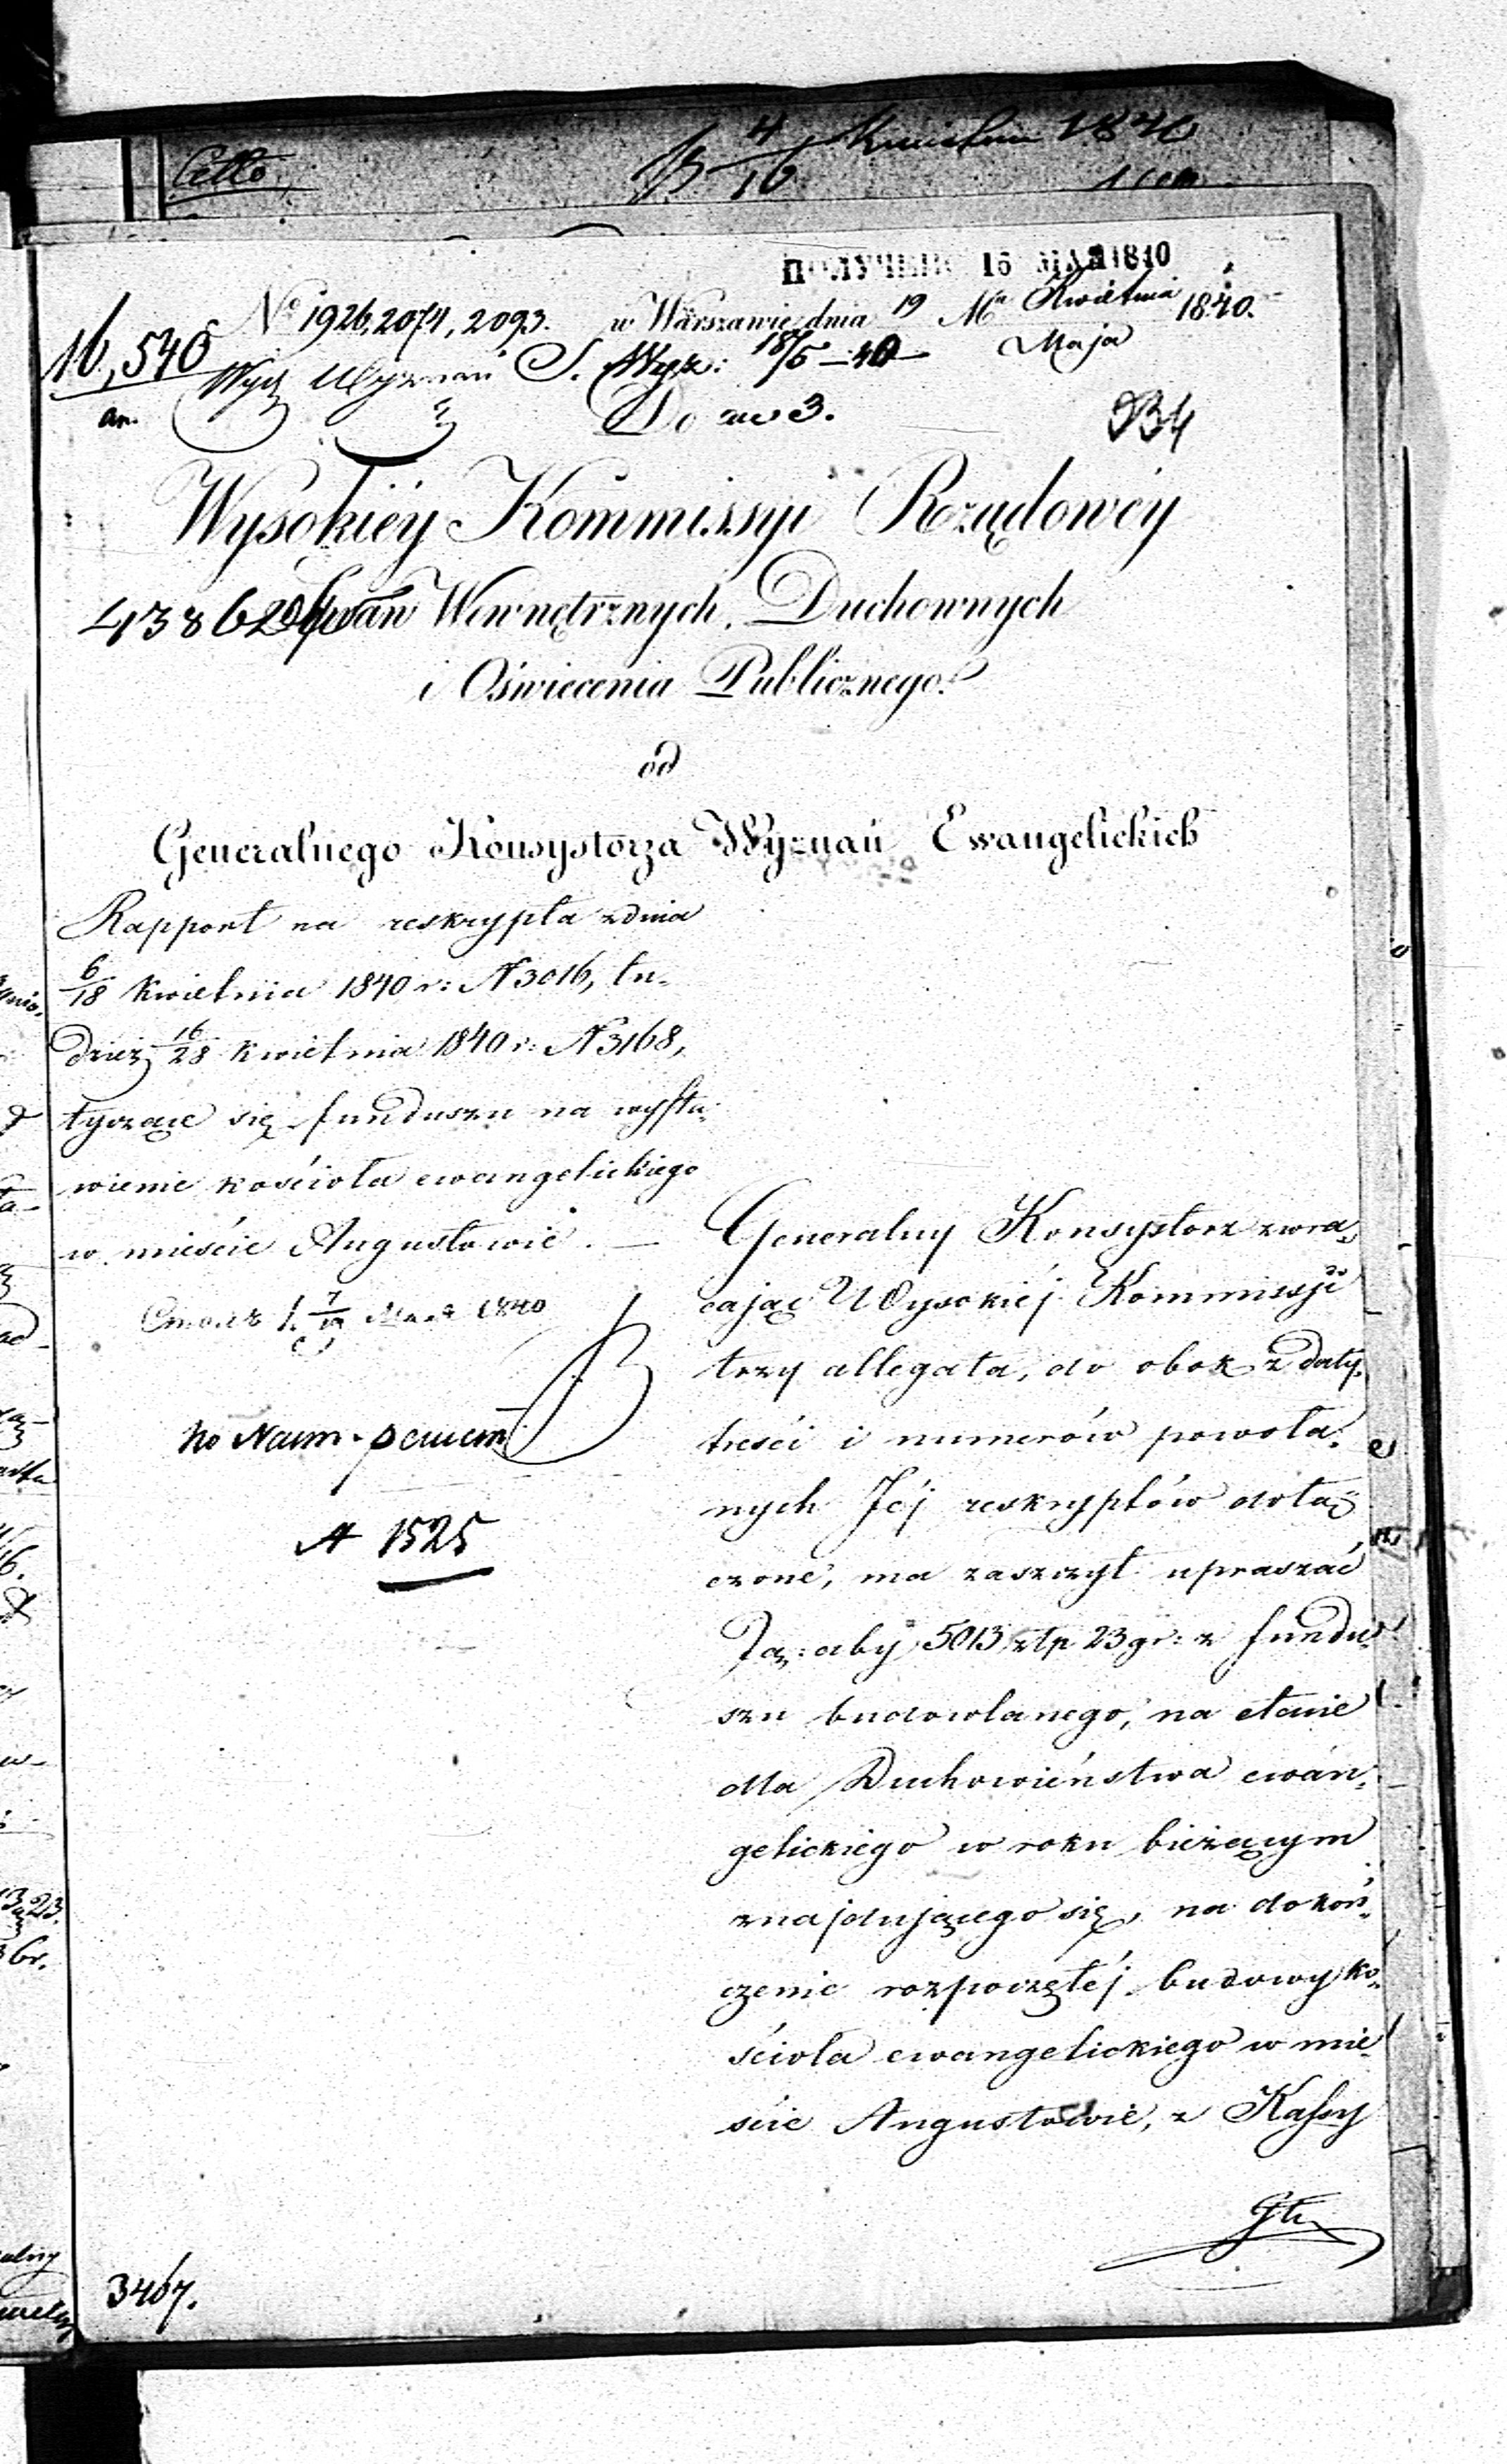 ПОЛУЧЕНО 16 МАЯ 1840
Nº 1926, 2074, 2093. w Warszawie dnia 19 Mca Kwietnia 1840.
Maja
16,540
Wyz Wyznań S. Wyz: 18/5 – 40
Do no 3.
Wysokiéy Kommissyi Rządowéy
43862 Spraw Wewnętrznych, Duchownych
i Oświecenia Publicznego.
od
Generalnego Konsystorza Wyznań Ewangelickich
Rapport na reskrypta z dnia
6/18 Kwietnia 1840 r: N 3016, tu-
dzież 16/28 Kwietnia 1840 r: N 3168,
tyczące się funduszu na wysta-
wienie kościoła ewangelickiego
w mieście Augustowie. —
7/19 Maja 1840
A 1525
Generalny Konsystorz zwra-
cając Wysokiéj Kommissji
trzy allegata, do obok z daty,
treści i numerów powoła-
nych Jéj reskryptów dołą-
czone, ma zaszczyt upraszać
Ją: aby 5013 złp 23 gr: z fundu-
szu budowlanego, na etacie
dla Duchowieństwa ewan-
gelickiego w roku bieżącym
znajdującego się, na dokoń-
czenie rozpoczętéj budowy ko-
ścioła ewangelickiego w mie-
ście Augustowie, z Kassy
3467.